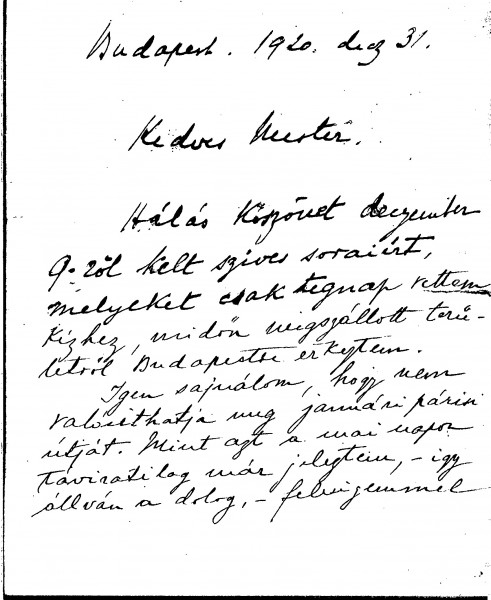 Budapest. 1920. decz 31.
Kedves Mester.
Hálás Köszönet deczember
9-ről kelt szives soraiért,
melyeket csak tegnap vettem
Kézhez, midőn megszállott terü-
letről Budapestre érkeztem.
Igen sajnálom, hogy nem
valósithatja meg januári párisi
útját. Mint azt a mai napon
táviratilag már jeleztem, – igy
állván a dolog, –